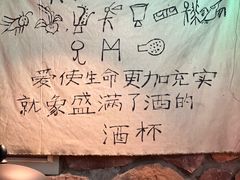 爱使生命更加充实
就象盛满了酒的
酒杯